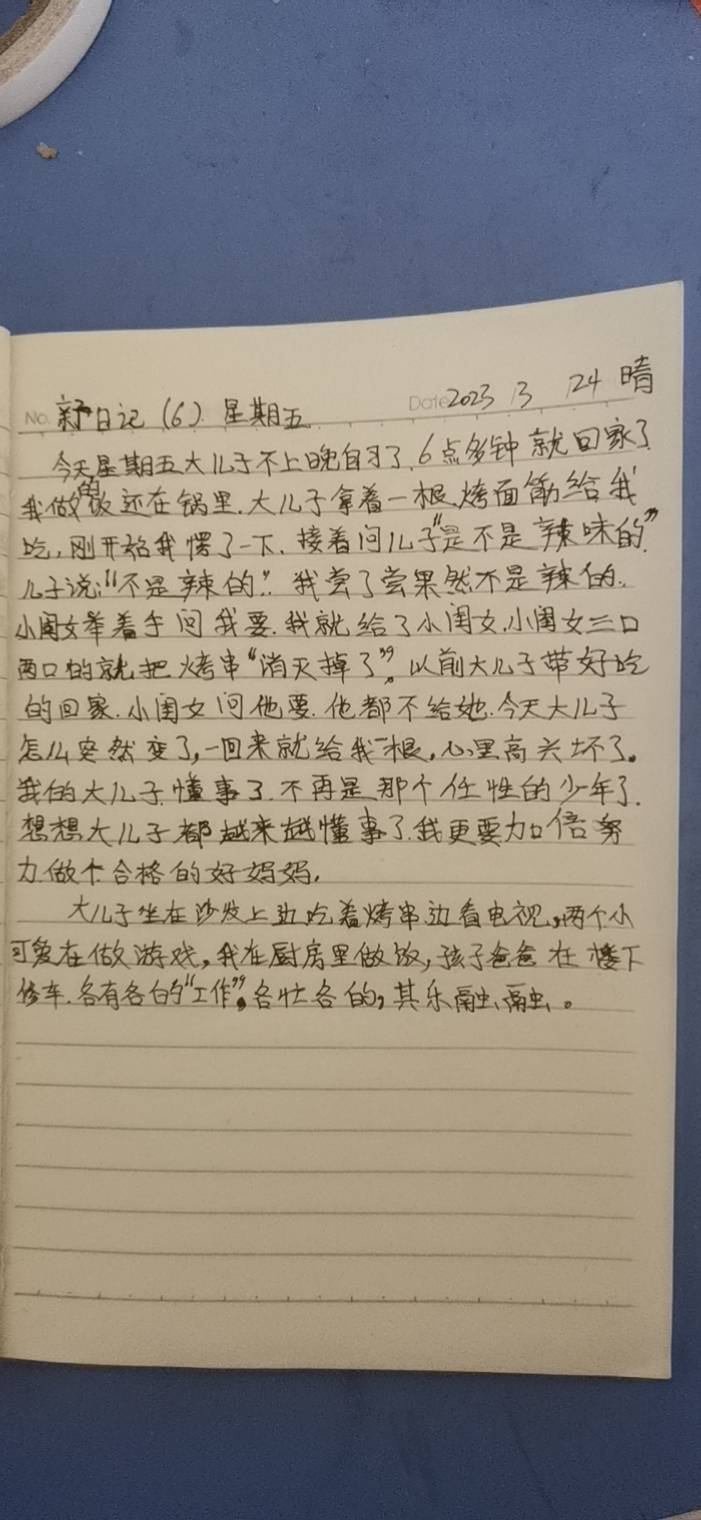 No. 亲子日记（6）星期五 Date 2023 /3 /24 晴
今天星期五大儿子不上晚自习了.6点多钟就回家了
我做的饭还在锅里.大儿子拿着一根烤面筋给我
吃,刚开始我愣了一下.接着问儿子"是不是辣味的"
儿子说:"不是辣的".我尝了尝果然不是辣的.
小闺女举着手问我要.我就给了小闺女.小闺女三口
两口的就把烤串"消灭掉了"。以前大儿子带好吃
的回家.小闺女问他要.他都不给她.今天大儿子
怎么突然变了,一回来就给我一根,心里高兴坏了。
我的大儿子懂事了.不再是那个任性的少年了.
想想大儿子都越来越懂事了.我更要加倍努
力做个合格的好妈妈.
大儿子坐在沙发上边吃着烤串边看电视,两个小
可爱在做游戏,我在厨房里做饭,孩子爸爸在楼下
修车.各有各的"工作",各忙各的,其乐融融。